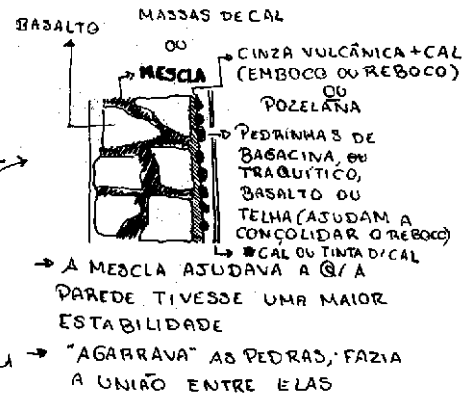 BASALTO
MASSAS DE CAL
OU
MESCLA
CINZA VULCÂNICA + CAL
(EMBOCO OU REBOCO)
OU
POZELANA
PEDRINHAS DE
BAGACINA, OU
TRAQUÍTICO,
BASALTO OU
TELHA (AJUDAM A
CONÇOLIDAR O REBOCO)
CAL OU TINTA D/CAL
→ A MESCLA AJUDAVA A Q/ A
PAREDE TIVESSE UMA MAIOR
ESTABILIDADE
→ "AGARRAVA" AS PEDRAS, FAZIA
A UNIÃO ENTRE ELAS